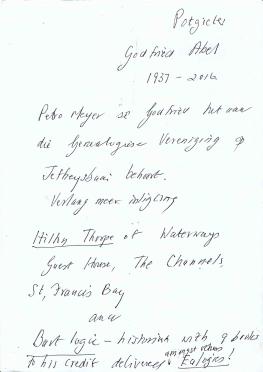 Potgieter
Godfried Abel
1937 - 2016
Petro Meyer se Godfried het aan
die Genealogiese Vereniging op
Jeffreysbaai behoort.
Verlang meer inligting
Hilthy Thorpe of Waterways
Guest House, The Channels
St, Francis Bay
and
Bart logie - historian with 9 books
to his credit delivered amongst others Eulogies!